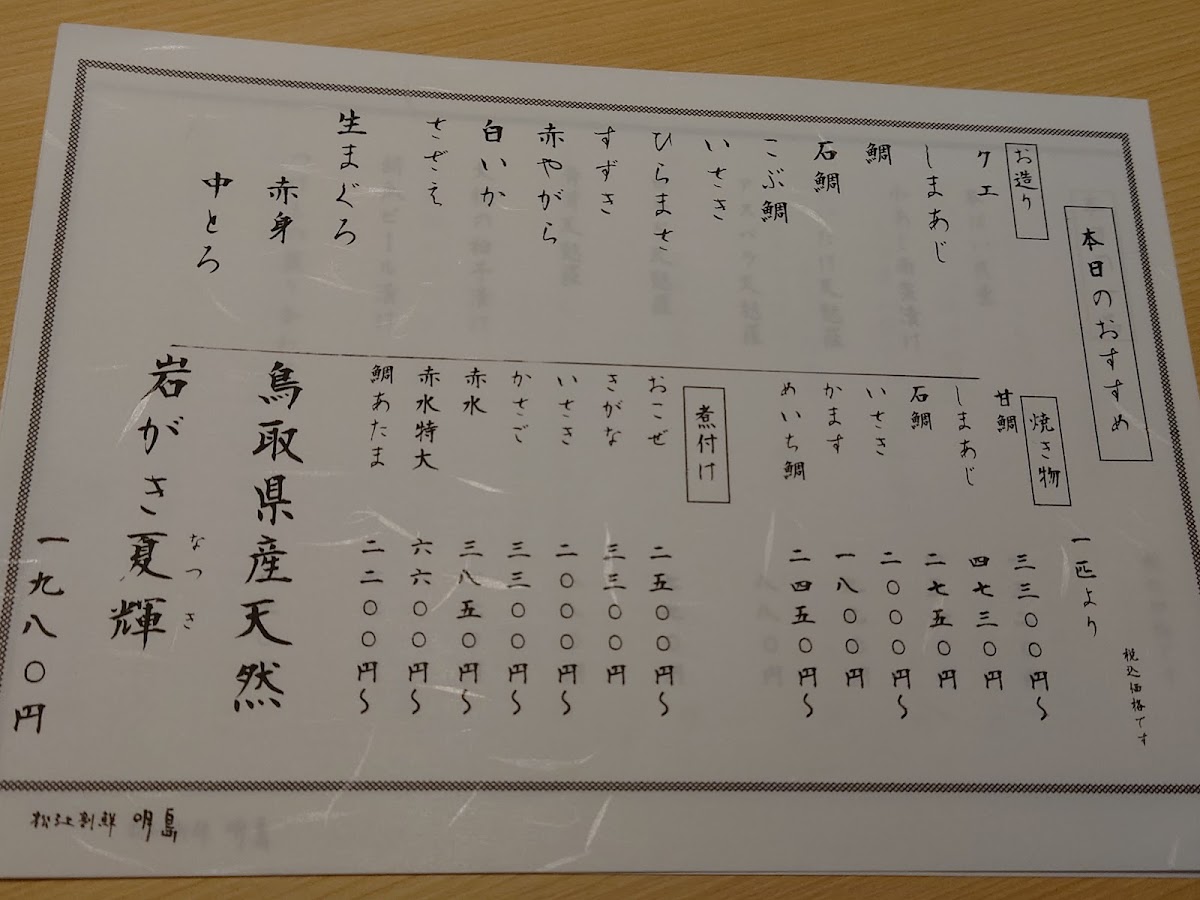 本日のおすすめ
税込価格です
お造り
クエ
しまあじ
鯛
石鯛
こぶ鯛
いさき
ひらまさ
すずき
赤やがら
白いか
さざえ
生まぐろ
赤身
中とろ
焼き物
一匹より
甘鯛 三三〇〇円〜
しまあじ 四七三〇円
石鯛 二七五〇円
いさき 二〇〇〇円〜
かます 一八〇〇円
めいち鯛 二四五〇円〜
煮付け
おこぜ 二五〇〇円〜
きがな 三三〇〇円
いさき 二〇〇〇円〜
かさご 三三〇〇円〜
赤水 三八五〇円〜
赤水特大 六六〇〇円〜
鯛あたま 二二〇〇円〜
鳥取県産天然
岩がき夏輝
なつき
一九八〇円
松江割鮮 明島